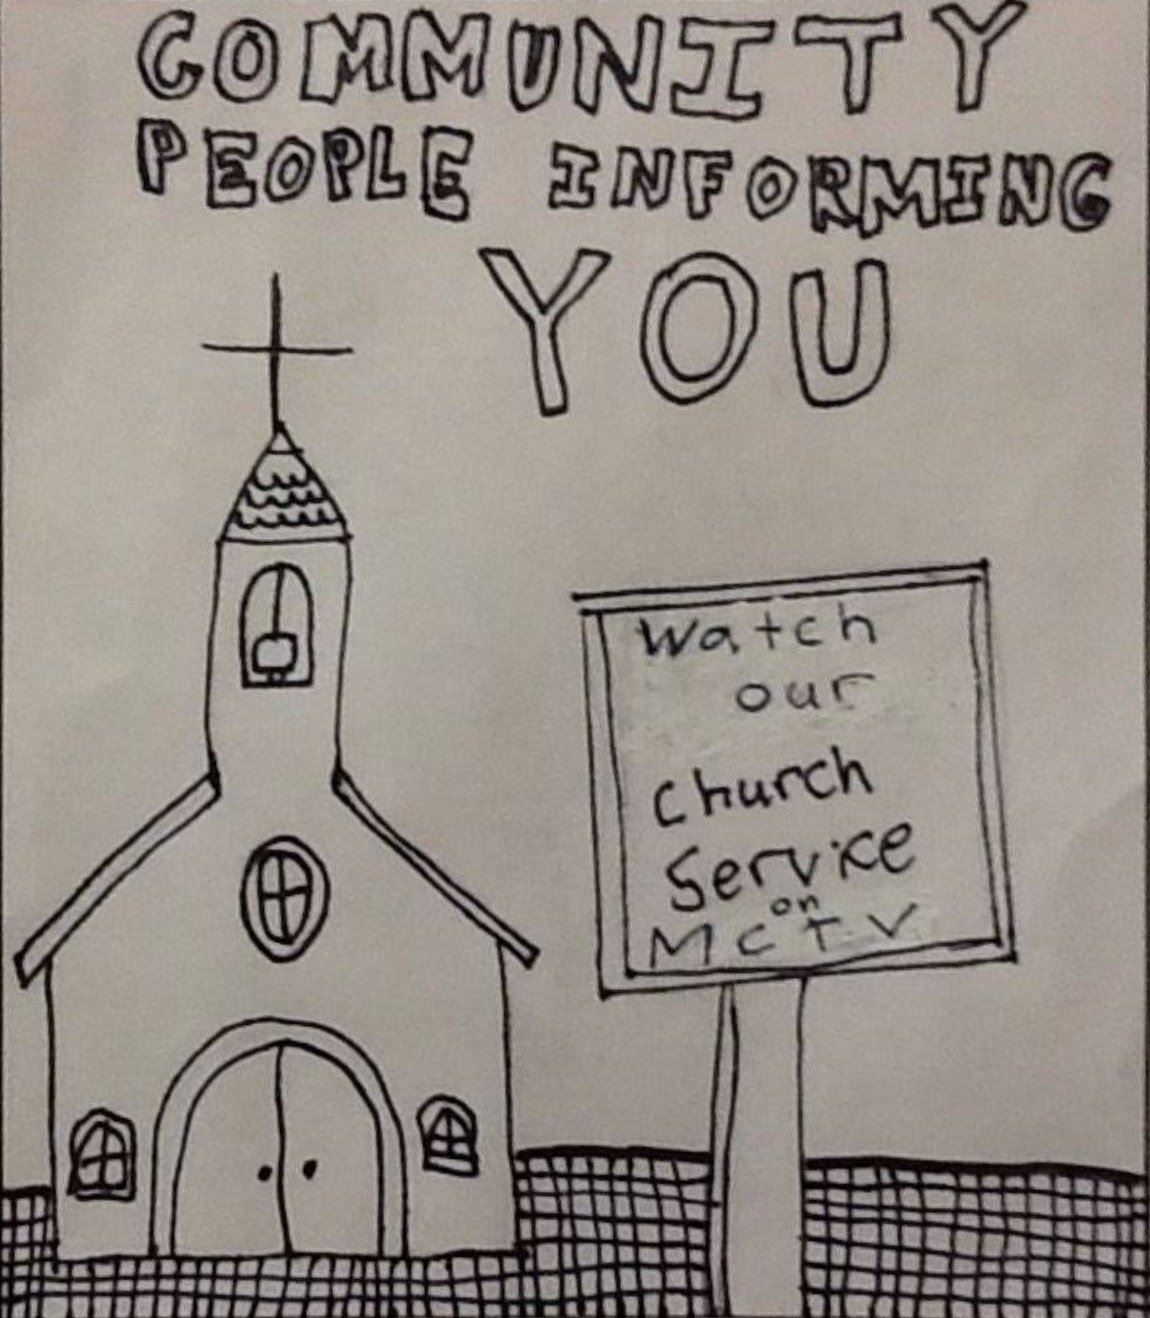 COMMUNITY
PEOPLE INFORMING
YOU
Watch
our
Church
Service
on
McTV